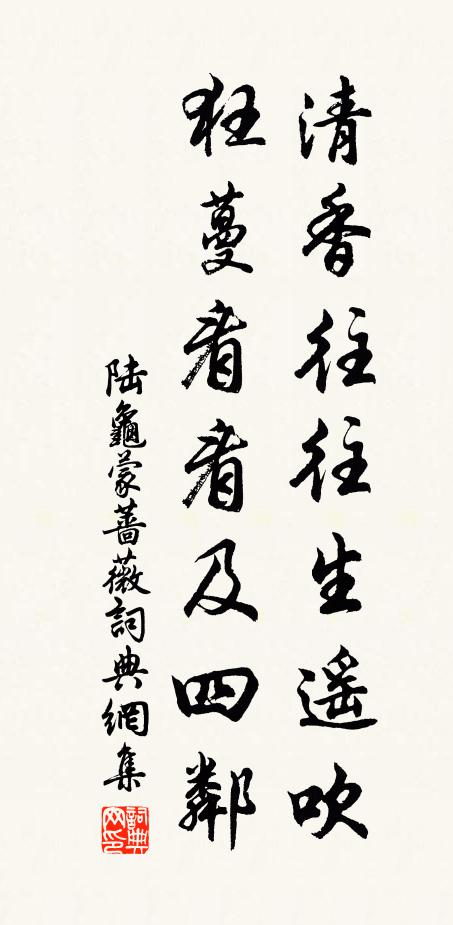 清香往往生遙吹
狂蔓看看及四鄰
陸龜蒙薔薇詞典網集
詞典网印